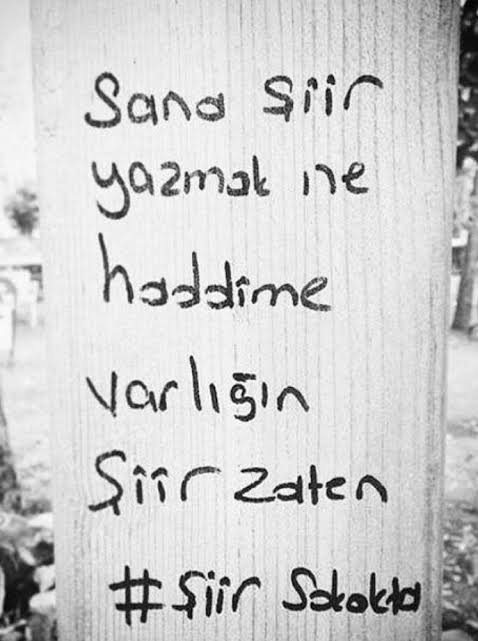 Sana şiir
yazmak ne
haddime
varlığın
Şiir zaten
#Şiir Sokakta